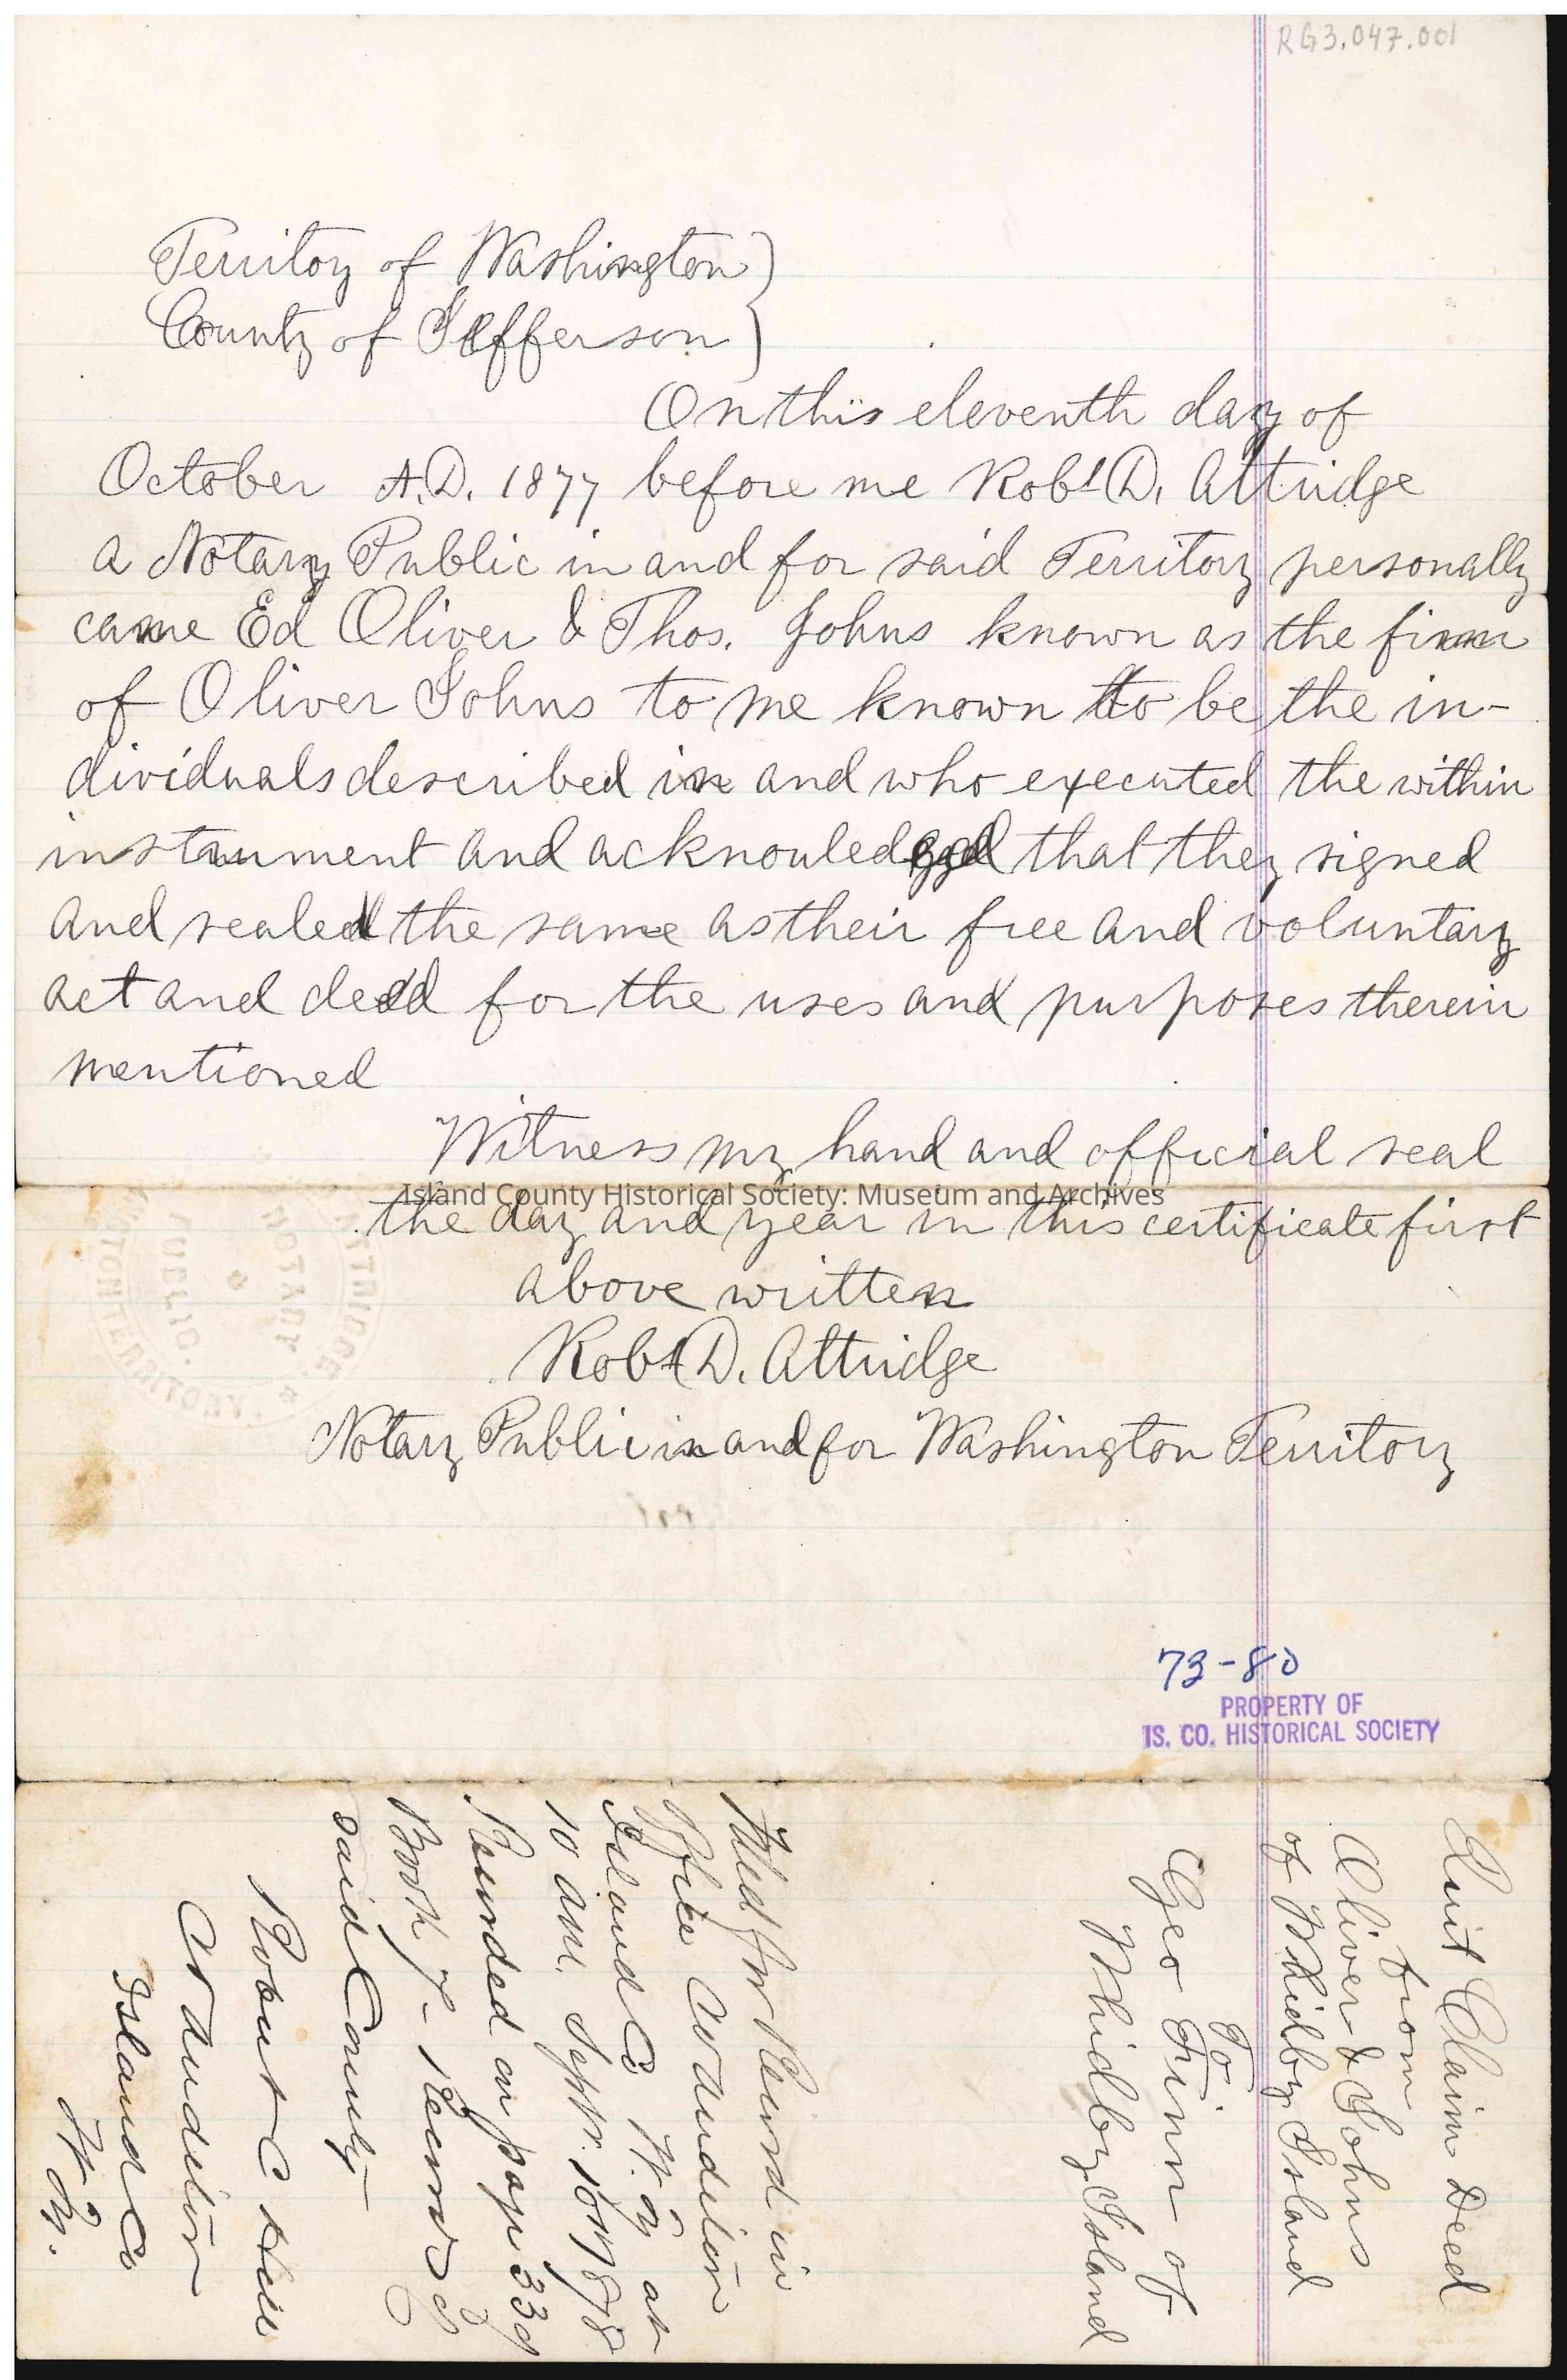 RG3.047.001
Territory of Washington }
County of Jefferson }
On this eleventh day of
October A.D. 1877 before me Robt D. Attridge
a Notary Public in and for said Territory personally
came Ed Oliver & Thos. Johns known as the firm
of Oliver Johns to me known to be the in-
dividuals described in and who executed the within
instrument and acknowledged that they signed
and sealed the same as their free and voluntary
act and deed for the uses and purposes therein
mentioned
Witness my hand and official seal
Island County Historical Society: Museum and Archives
the day and year in this certificate first
above written
Robt D. Attridge
Notary Public in and for Washington Territory
ATTRIDGE
NOTARY
PUBLIC.
TON TERRITORY.
73-80
PROPERTY OF
IS. CO. HISTORICAL SOCIETY
Quit Claim Deed
from
Oliver & Johns
of Whidby Island
To
Geo Finn of
Whidby Island
Filed for Record in
Office Co Auditor
Island Co W. Ty at
10 am. Septr. 16th 1878
Recorded on page 339
Book 7 - Records of
said County -
Robert C Hill
Co Auditor
Island Co
W. Ty.